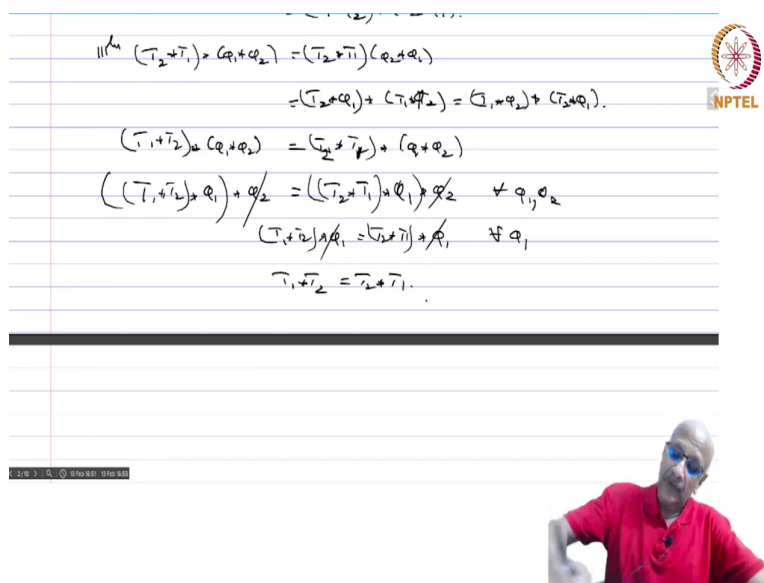 |||ly (T₂*T₁)*(φ₁*φ₂) =(T₂*T₁)(φ₂*φ₁)
=(T₂*φ₁)*(T₁*φ₂) = (T₁*φ₂)*(T₂*φ₁).
(T₁*T₂)*(φ₁*φ₂) = (T₂*T₁)*(φ₁*φ₂)
((T₁*T₂)*φ₁)*φ₂ =((T₂*T₁)*φ₁)*φ₂ ∀ φ₁,φ₂
(T₁*T₂)*φ₁ =(T₂*T₁)*φ₁ ∀ φ₁
T₁*T₂ = T₂*T₁.
NPTEL
2/10 13 Feb 18:51 13 Feb 18:55